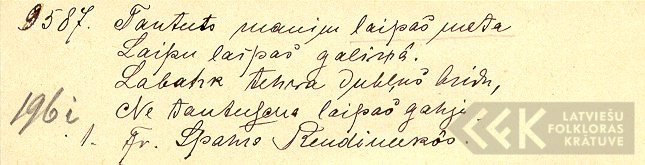 9587. Tautets manim laipas meta
Laipu laipas galiņā.
Labahk tehwa dubļus bridu,
Ne tauteeša laipas gahju.
1961
1. Fr. Spahrs Rendineekos.
LATVIEŠU
FOLKLORAS
KRĀTUVE